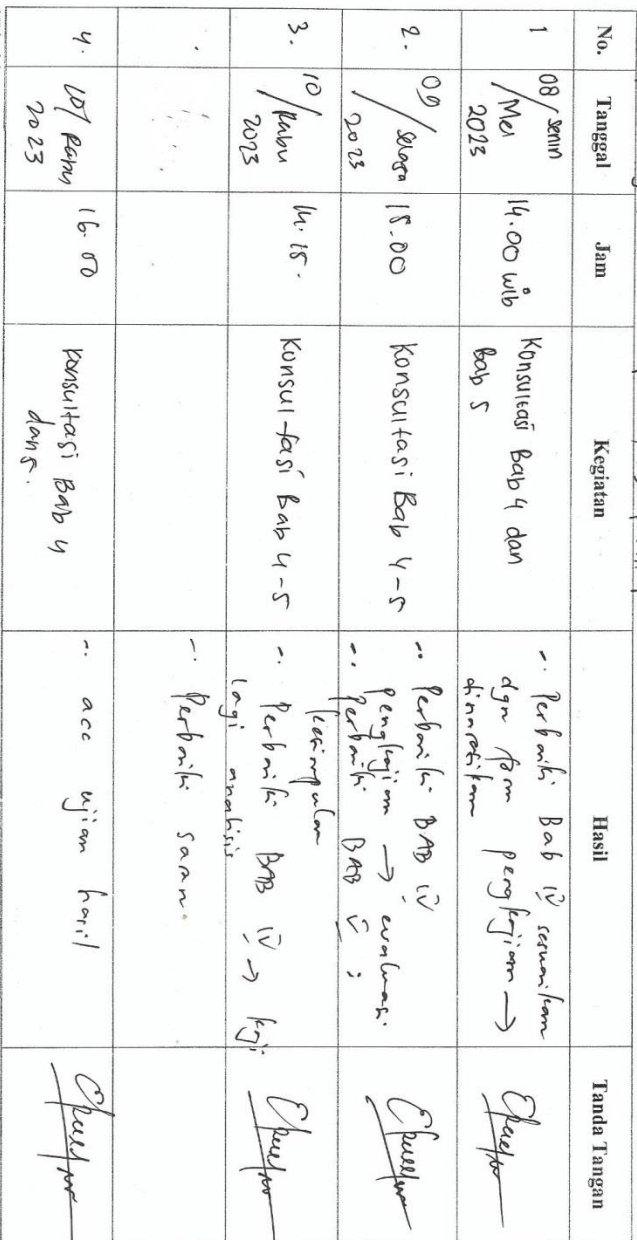 No. Tanggal Jam Kegiatan Hasil Tanda Tangan
1
08/senin
Mei
2023
14.00 wib
Konsultasi Bab 4 dan
Bab 5
-. Perbaiki Bab IV sesuaikan
dgn form pengkajian →
dinarasikan
2.
09/selasa
2023
15.00
Konsultasi Bab 4-5
-. Perbaiki BAB IV
pengkajian → evaluasi.
-. Perbaiki BAB V :
kesimpulan
3.
10/Rabu
2023
14.15.
Konsul-tasi Bab 4-5
-. Perbaiki BAB IV → kaji
lagi analisis
-. Perbaiki saran.
4.
10/ Rabu
2023
16.00
Konsultasi Bab 4
dan 5.
-. acc ujian hasil